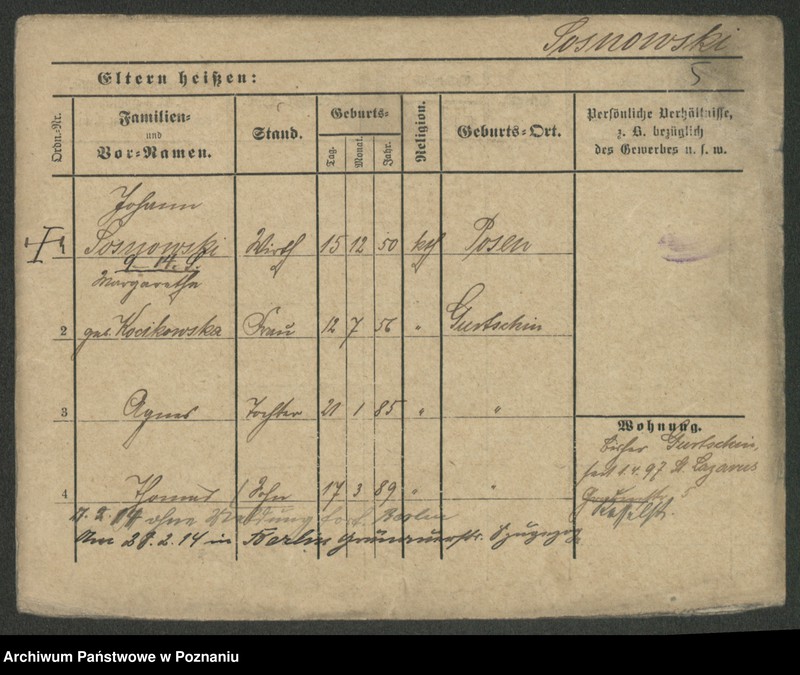 Sosnowski
5
Eltern heißen:
Ordn.-Nr.
Familien-
und
Vor-Namen.
Stand.
Geburts-
Tag.
Monat.
Jahr.
Religion.
Geburts-Ort.
Persönliche Verhältnisse,
z. B. bezüglich
des Gewerbes u. s. w.
Johann
Sosnowski Wirth 15 12 50 kath Posen
Margaretha
2 geb. Kocikowska Frau 12 7 56 " Gurtschin
3 Agnes Tochter 21 1 85 " "
Wohnung.
bisher Gurtschin,
seit 1.4.97 St. Lazarus
5
4 Thomas Sohn 17 3 89 " "
ohne Meldung fort. Berlin
Am 28.2.14 in Berlin
Archiwum Państwowe w Poznaniu